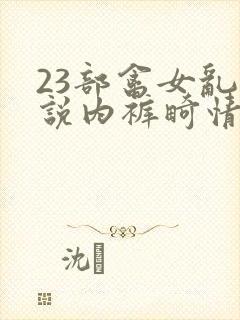 23部畲女亂
説内裤畸情
沈